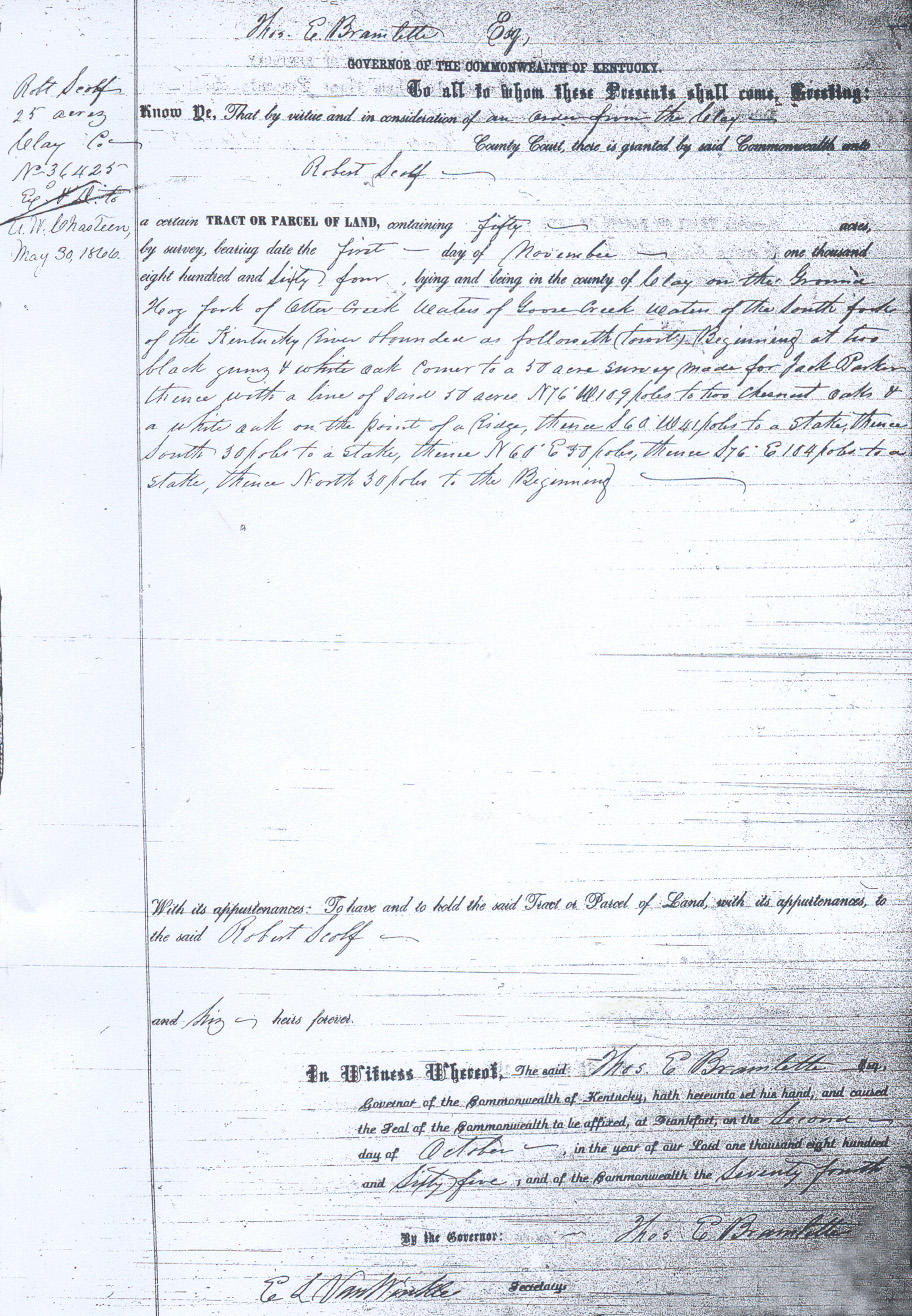 Thos. E. Bramlette Esq,
GOVERNOR OF THE COMMONWEALTH OF KENTUCKY.
To all to whom these Presents shall come, Greeting:
Know Ye, That by virtue and in consideration of an order from the Clay
County Court, there is granted by said Commonwealth unto
Robert Scolf
Robt Scolf
25 acres
Clay Co
No 36425
Ex & D. to
A. W. Chasteen,
May 30, 1866.
a certain TRACT OR PARCEL OF LAND, containing fifty acres,
by survey, bearing date the first day of November, one thousand
eight hundred and sixty four, lying and being in the county of Clay on the Ground
Hog fork of Otter Creek Waters of Goose Creek Waters of the South fork
of the Kentucky River bounded as followeth (towit) Beginning at two
black gums & white oak corner to a 50 acre survey made for Jack Parker
thence with a line of said 50 acres N76° W109 poles to two chesnut oaks &
a white oak on the point of a Ridge, thence S60 W41 poles to a stake, thence
South 30 poles to a stake, thence N60° E 30 poles, thence S76° E 104 poles to a
stake, thence North 30 poles to the Beginning
With its appurtenances: To have and to hold the said Tract or Parcel of Land, with its appurtenances, to
the said Robert Scolf
and his heirs forever.
In Witness Whereof, The said Thos. E Bramlette Esq,
Governor of the Commonwealth of Kentucky, hath hereunto set his hand, and caused
the Seal of the Commonwealth to be affixed, at Frankfort, on the Second
day of October, in the year of our Lord one thousand eight hundred
and Sixty five, and of the Commonwealth the Seventy fourth
By the Governor: Thos E Bramlette
E L VanWinkle Secretary